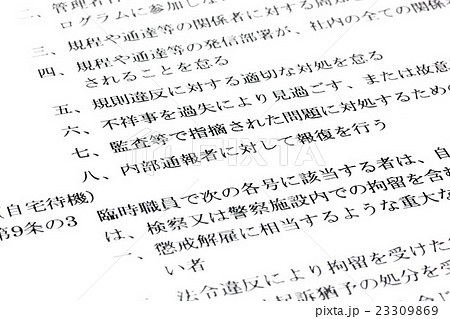 二、管理者
ログラムに参加しな
三、規程や通達等の関係者に対する周
四、規程や通達等の発信部署が、社内の全ての関係
されることを怠る
五、規則違反に対する適切な対処を怠る
六、不祥事を過失により見過ごす、または故意
七、監査等で指摘された問題に対処するため
八、内部通報者に対して報復を行う
（自宅待機）
第9条の3 臨時職員で次の各号に該当する者は、自
は、検察又は警察施設内での拘留を含
一、懲戒解雇に相当するような重大な
い者
法令違反により拘留を受けた
起訴猶予の処分を受
pixta.jp - 23309869